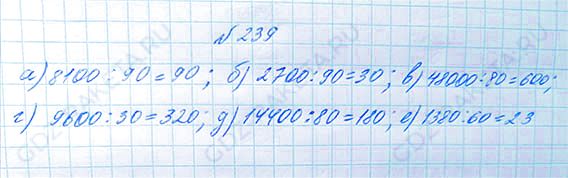 № 239
а) 8100 : 90 = 90; б) 2700 : 90 = 30; в) 48000 : 80 = 600;
г) 9600 : 30 = 320; д) 14400 : 80 = 180; е) 1380 : 60 = 23